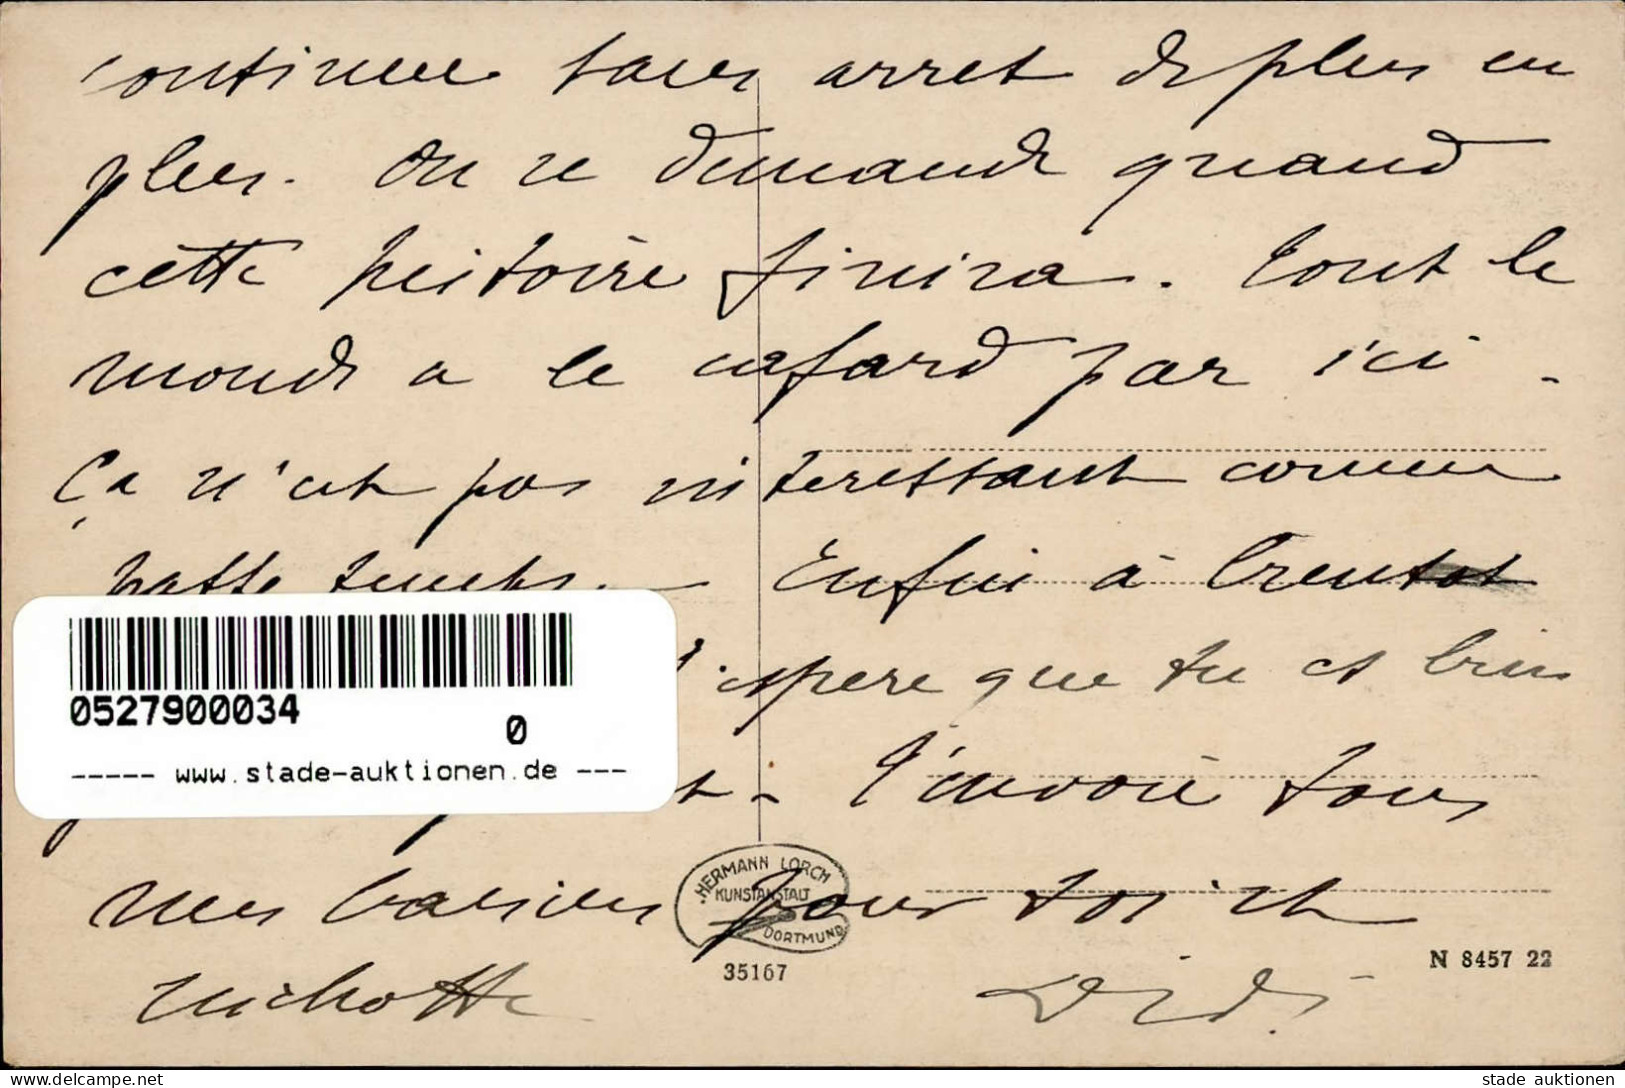 continue sans arret de plus en
plus. On se demande quand
cette histoire finira. Tout le
monde a le cafard par ici.
Ça n'est pas interessant comme
passe temps. Enfin à bientot
j'espere que tu es bien
0527900034
0
----- www.stade-auktionen.de ---
t - J'envoie tous
mes baisers pour toi et
HERMANN LORCH
KUNSTANSTALT
DORTMUND
35167
N 8457 22
michotte Didi
www.delcampe.net
stade auktionen